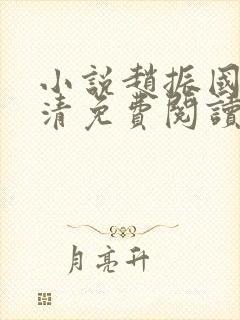 小說趙振國
清免費閱讀
月亮升